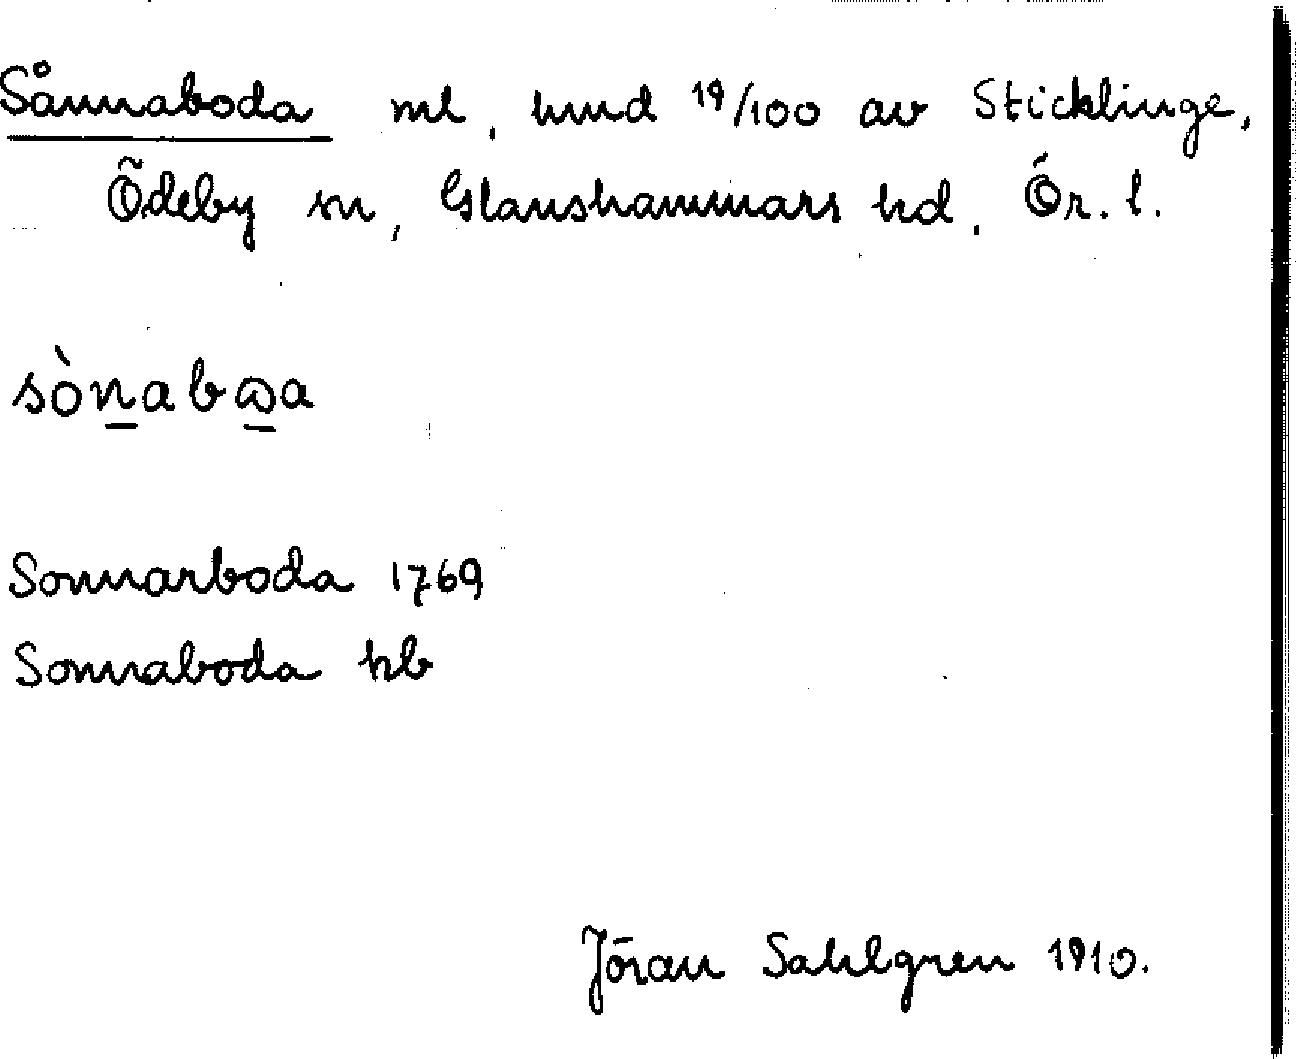 Sånnaboda ml, hmd 19/100 av Sticklinge,
Ödeby sn, Glanshammars hd, Ör. l.
sònabωa
Sonnarboda 1769
Sonnaboda hb
Jöran Sahlgren 1910.